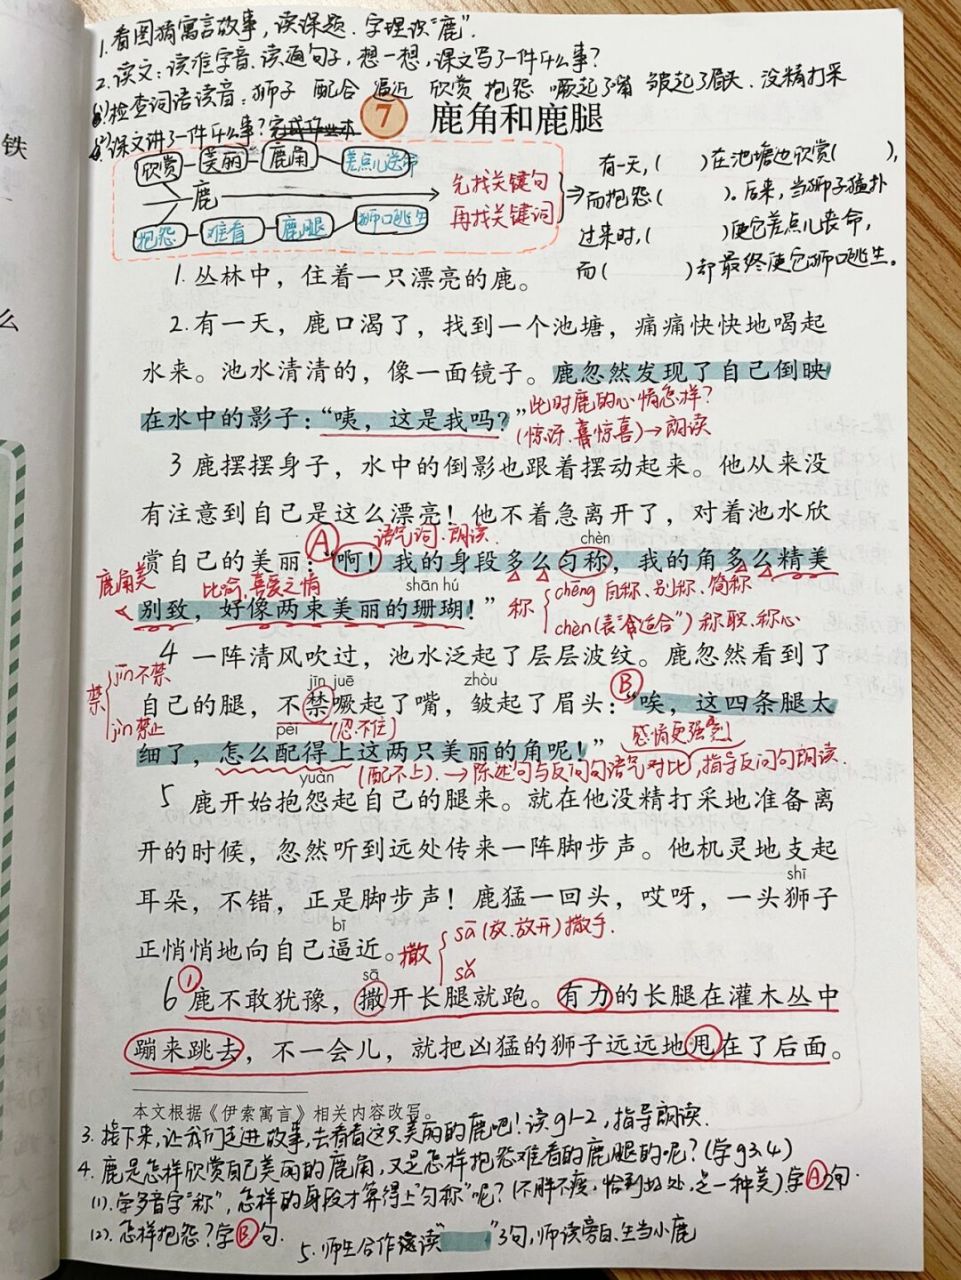 1.看图猜寓言故事,读课题.字理识"鹿".
2.读文:读准字音.读通句子,想一想,课文写了一件什么事?
(1)检查词语读音:狮子 配合 逼近 欣赏 抱怨 噘起了嘴 皱起了眉头.没精打采
(2)课文讲了一件什么事?
7 鹿角和鹿腿
欣赏 美丽 鹿角 差点儿送命
鹿
抱怨 难看 鹿腿 狮口逃生
先找关键句
再找关键词
有一天,( )在池塘边欣赏( ),
而抱怨( ).后来,当狮子猛扑
过来时,( )使它差点儿丧命,
而( )却最终使它狮口逃生.
1.丛林中,住着一只漂亮的鹿。
2.有一天,鹿口渴了,找到一个池塘,痛痛快快地喝起
水来。池水清清的,像一面镜子。鹿忽然发现了自己倒映
在水中的影子:“咦,这是我吗?”
此时鹿的心情怎样?
(惊讶.惊喜)→朗读
3 鹿摆摆身子,水中的倒影也跟着摆动起来。他从来没
有注意到自己是这么漂亮!他不着急离开了,对着池水欣
A 语气词.朗读. chèn
赏自己的美丽:“啊!我的身段多么匀称,我的角多么精美
鹿角美 比喻,喜爱之情 shān hú
别致,好像两束美丽的珊瑚!”
称 chēng 自称.别称.简称
chèn(表“适合”)称职.称心
4 一阵清风吹过,池水泛起了层层波纹。鹿忽然看到了
禁 jīn不禁
jìn禁止
jīn juē zhòu B
自己的腿,不禁噘起了嘴,皱起了眉头:“唉,这四条腿太
pèi (忍不住) 感情更强烈
细了,怎么配得上这两只美丽的角呢!”
yuàn (配不上).→陈述句与反问句语气对比,指导反问句朗读.
5 鹿开始抱怨起自己的腿来。就在他没精打采地准备离
开的时候,忽然听到远处传来一阵脚步声。他机灵地支起
shī
耳朵,不错,正是脚步声!鹿猛一回头,哎呀,一头狮子
bī
正悄悄地向自己逼近。
撒 sā(放.放开)撒手.
sǎ
① sā
6 鹿不敢犹豫,撒开长腿就跑。有力的长腿在灌木丛中
蹦来跳去,不一会儿,就把凶猛的狮子远远地甩在了后面。
本文根据《伊索寓言》相关内容改写。
3.接下来,让我们走进故事,去看看这只美丽的鹿吧!读g1-2,指导朗读.
4.鹿是怎样欣赏自己美丽的鹿角,又是怎样抱怨难看的鹿腿的呢?(学g3.4)
(1).学多音字“称”,怎样的身段才算得上“匀称”呢?(不胖不瘦,恰到好处,是一种美)学A句.
(2).怎样抱怨?学B句.
5.师生合作读“ ”3句,师读旁白.生当小鹿
铁
么